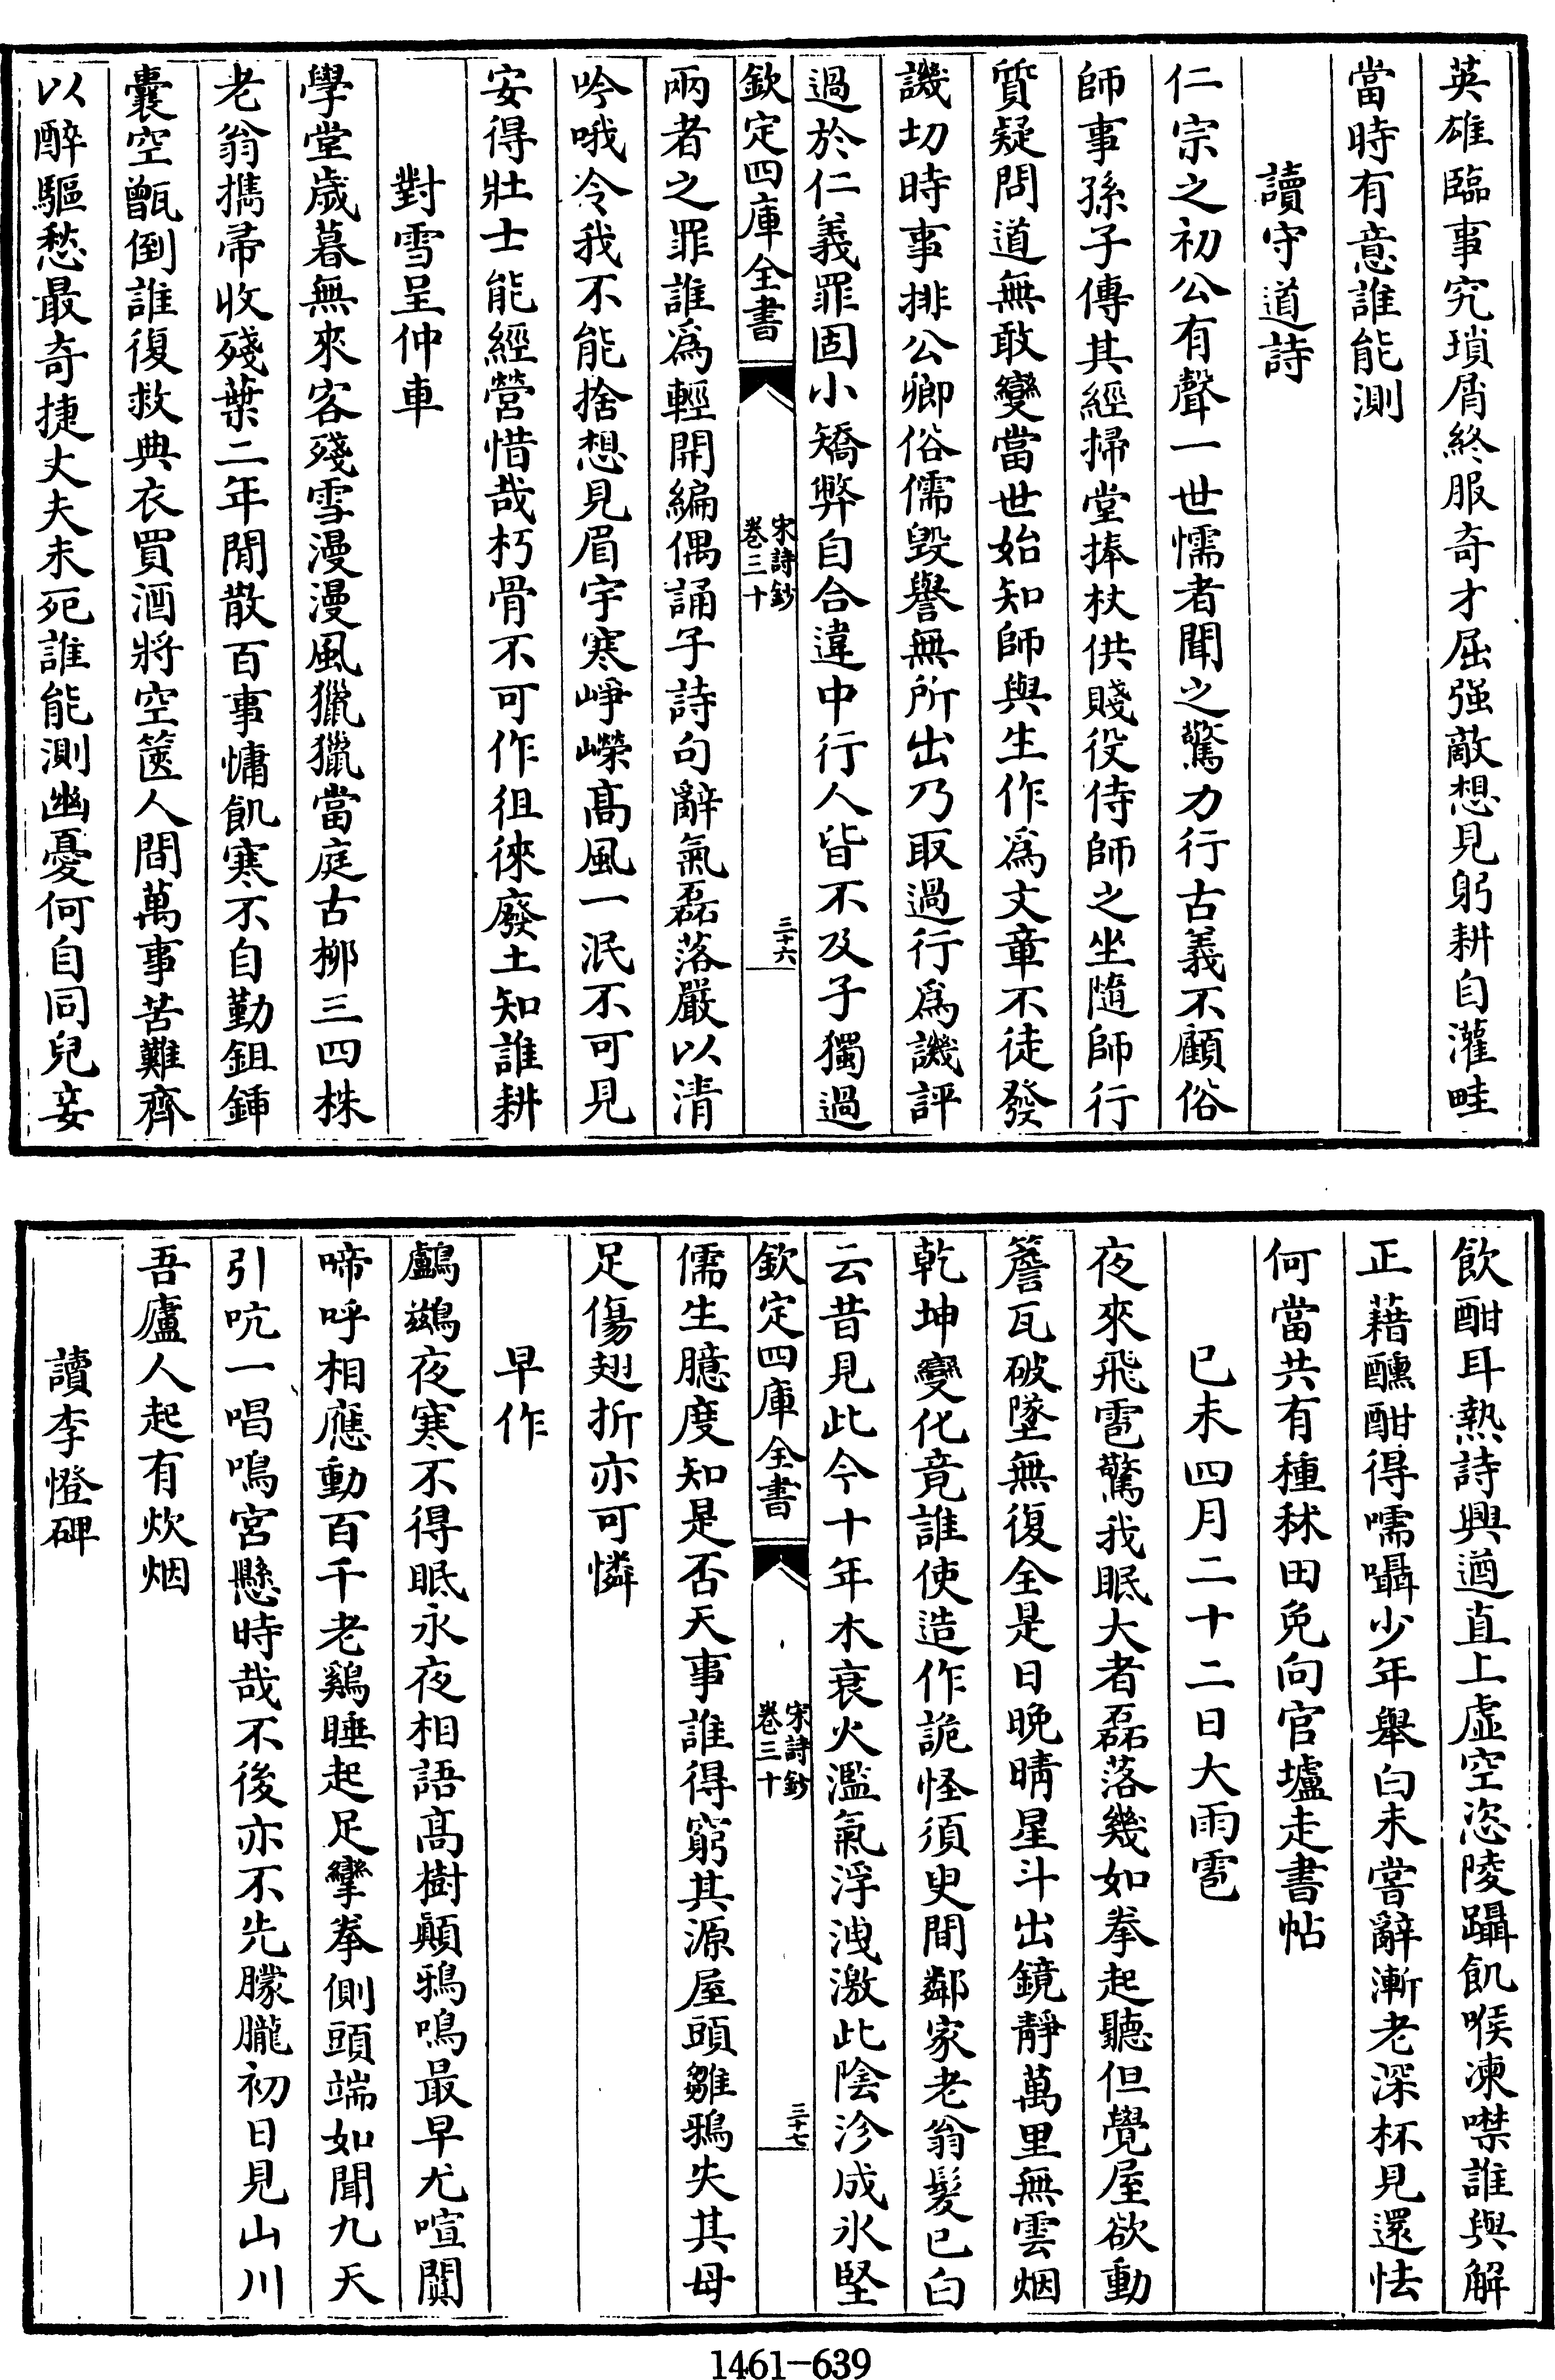 英雄臨事究瑣屑終服奇才屈强敵想見躬耕自灌畦
當時有意誰能測
讀守道詩
仁宗之初公有聲一世懦者聞之驚力行古義不顧俗
師事孫子傳其經掃堂捧杖供賤役侍師之坐隨師行
質疑問道無敢變當世始知師與生作爲文章不徒發
譏切時事排公卿俗儒毁譽無所出乃取過行爲譏評
過於仁義罪固小矯弊自合違中行人皆不及子獨過
欽定四庫全書
宋詩鈔
卷三十
三十六
兩者之罪誰爲輕開編偶誦子詩句辭氣磊落嚴以清
吟哦令我不能捨想見眉宇寒崢嶸髙風一泯不可見
安得壯士能經營惜哉朽骨不可作徂徠廢土知誰耕
對雪呈仲車
學堂歲暮無來客殘雪漫漫風獵獵當庭古柳三四株
老翁攜帚收殘葉二年閒散百事慵飢寒不自勤鉏鍤
囊空甑倒誰復救典衣買酒將空篋人間萬事苦難齊
以醉驅愁最奇捷丈夫未死誰能測幽憂何自同兒妾
飲酣耳熱詩興遒直上虚空恣陵躡飢喉凍噤誰與解
正藉醺酣得嚅囁少年舉白未嘗辭漸老深杯見還怯
何當共有種秫田免向官壚走書帖
已未四月二十二日大雨雹
夜來飛雹驚我眠大者磊落幾如拳起聽但覺屋欲動
簷瓦破墜無復全是日晚晴星斗出鏡靜萬里無雲烟
乾坤變化竟誰使造作詭怪須臾間鄰家老翁髮已白
云昔見此今十年木衰火濫氣浮洩激此陰沴成氷堅
欽定四庫全書
宋詩鈔
卷三十
三十七
儒生臆度知是否天事誰得窮其源屋頭雛鴉失其母
足傷翅折亦可憐
早作
鸕鷀夜寒不得眠永夜相語髙樹顛鴉鳴最早尤喧闐
啼呼相應動百千老鷄睡起足攣拳側頭端如聞九天
引吭一唱鳴宮懸時哉不後亦不先朦朧初日見山川
吾廬人起有炊烟
讀李憕碑
1461-639